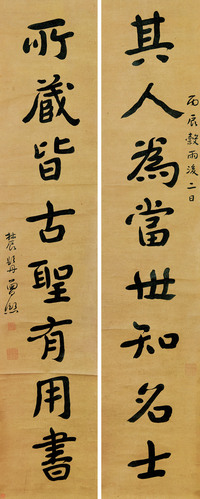 丙辰穀雨後二日
其人為當世知名士
所藏皆古聖有用書
農髯曾熙